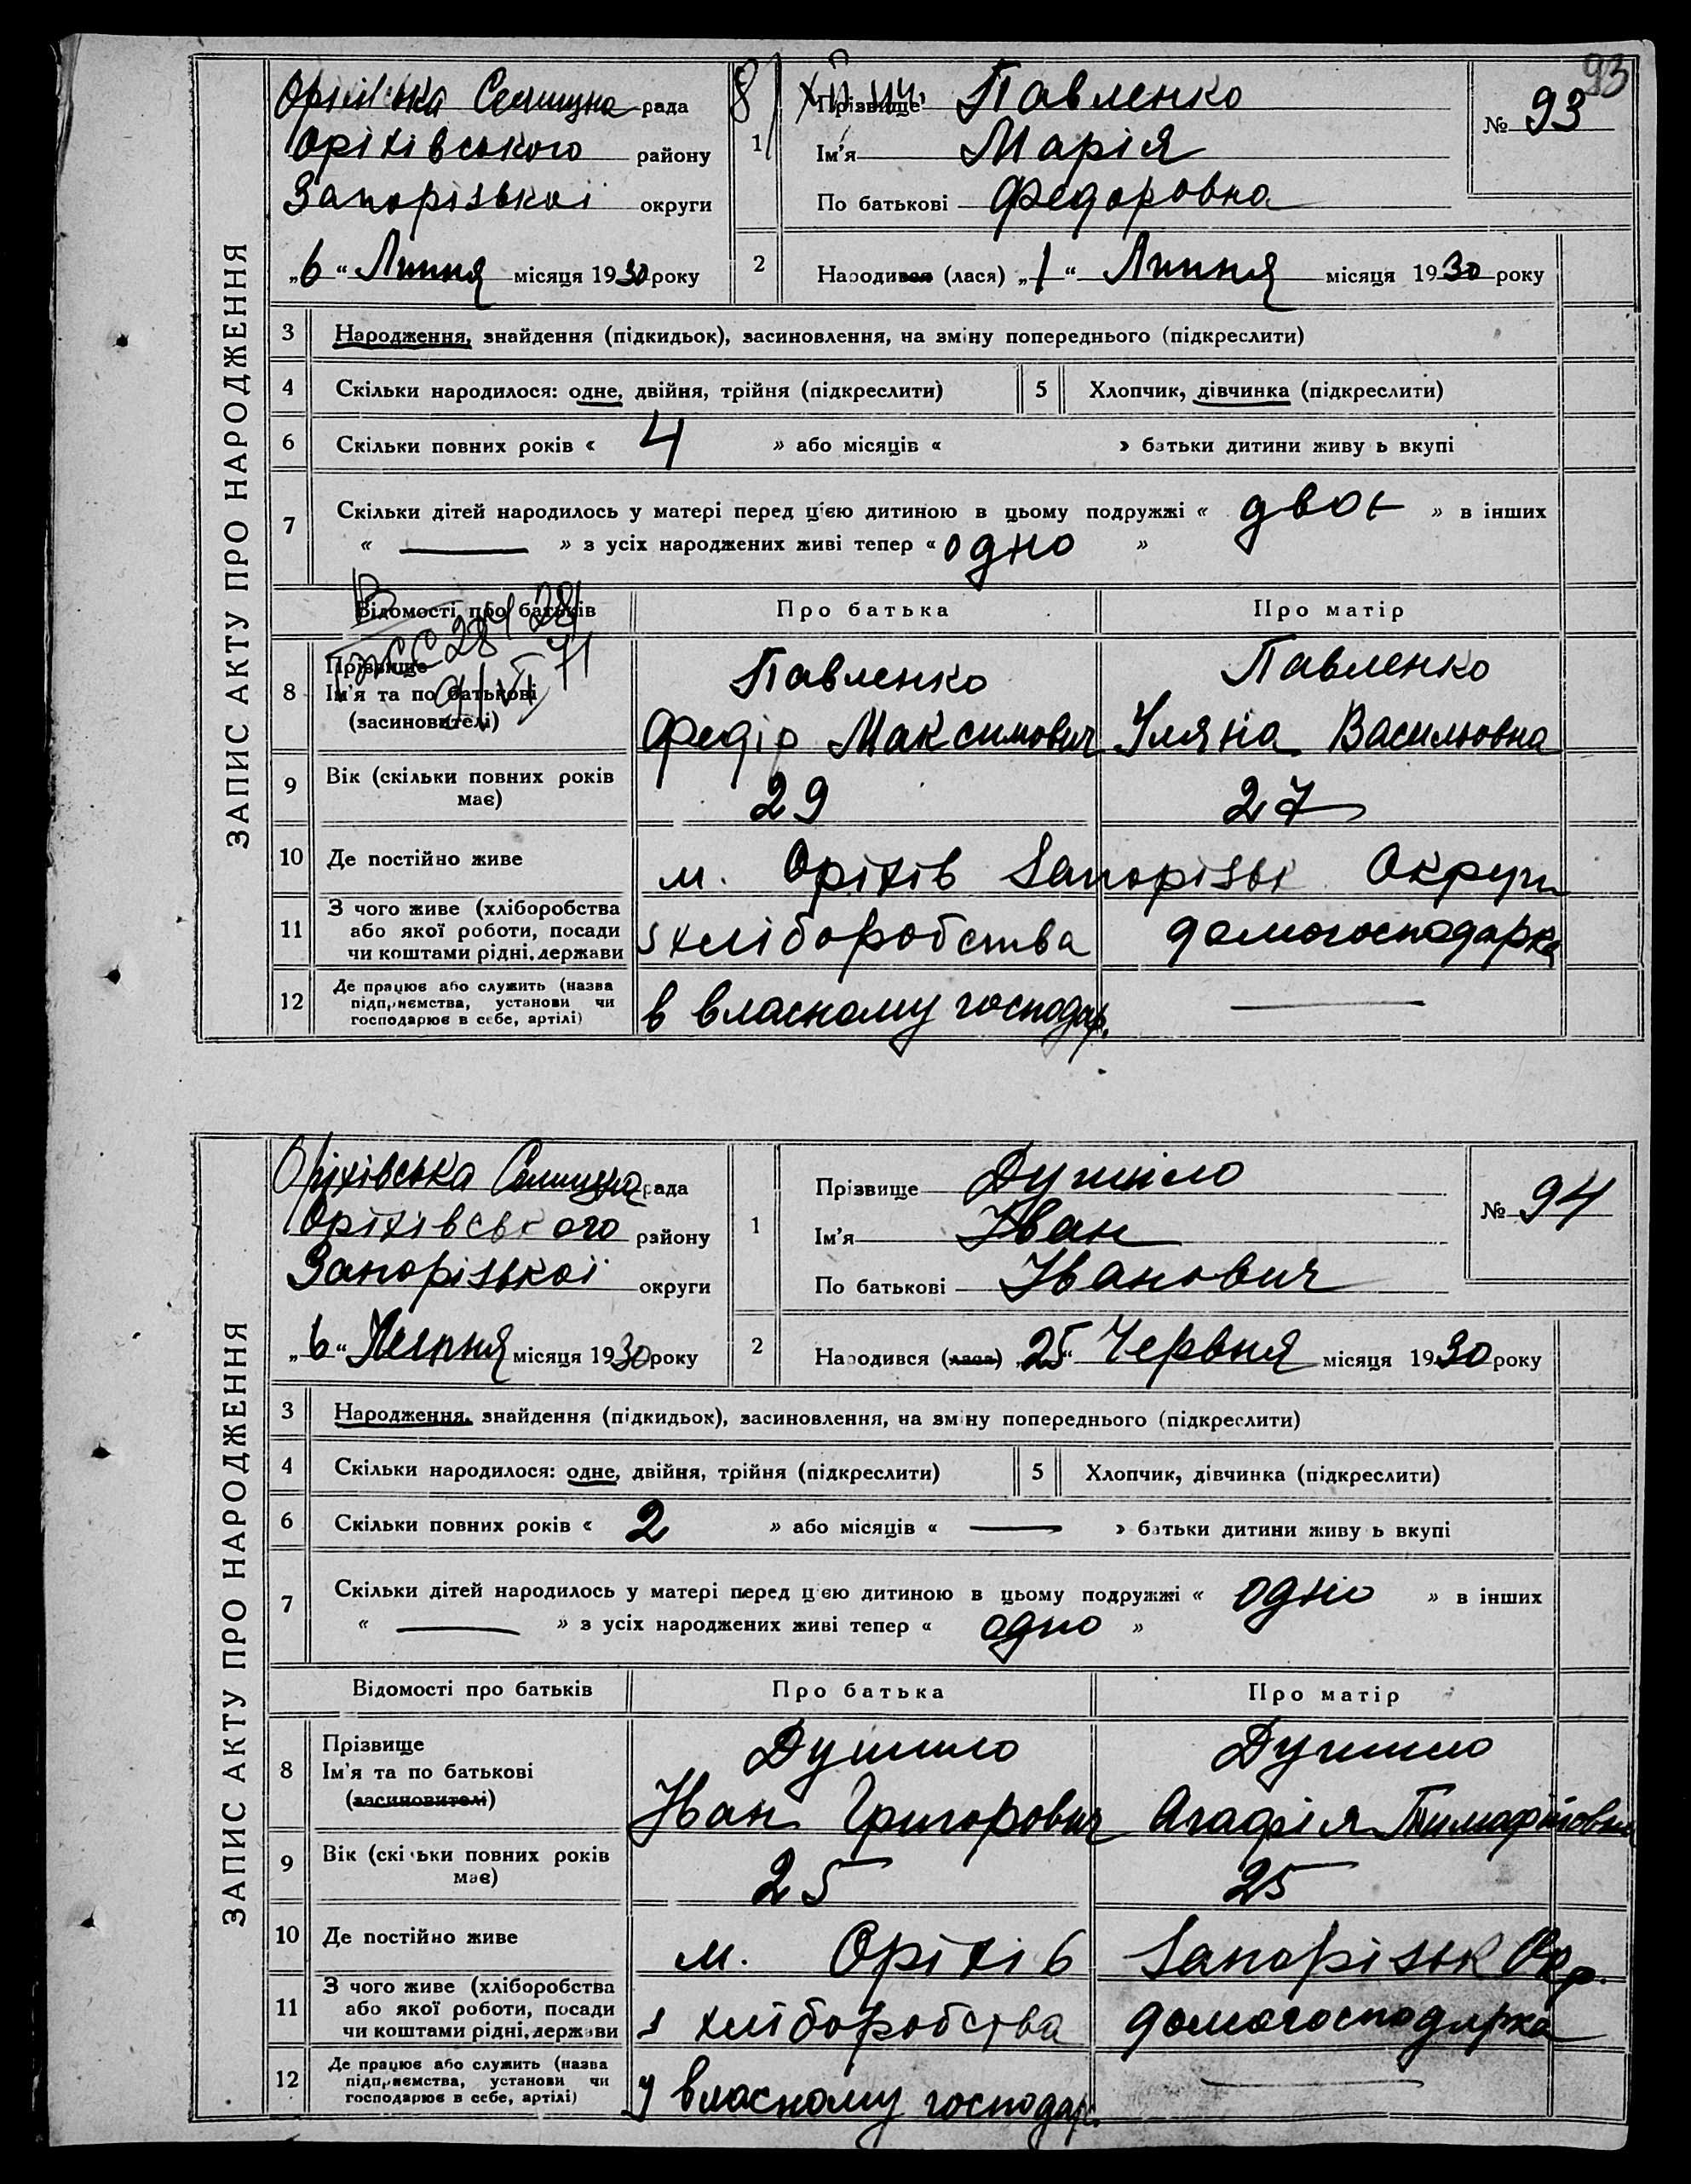 93
ЗАПИС АКТУ ПРО НАРОДЖЕННЯ
Оріхівська Селищна рада
Оріхівського району
Запорізької округи
„6“ Липня місяця 1930 року
1
Прізвище Павленко
Ім'я Марія
По батькові Федоровна
№ 93
2 Народився (лася) „1“ Липня місяця 1930 року
3 Народження, знайдення (підкидьок), засиновлення, на зміну попереднього (підкреслити)
4 Скільки народилося: одне, двійня, трійня (підкреслити) 5 Хлопчик, дівчинка (підкреслити)
6 Скільки повних років « 4 » або місяців « » батьки дитини живуть вкупі
7 Скільки дітей народилось у матері перед цією дитиною в цьому подружжі « двоє » в інших
« — » з усіх народжених живі тепер « одно »
Відомості про батьків Про батька Про матір
8 Прізвище Павленко Павленко
Ім'я та по батькові
(засиновителі) Федір Максимович Уляна Василювна
9 Вік (скільки повних років
має) 29 27
10 Де постійно живе м. Оріхів Запорізьк Округи
11 З чого живе (хліборобства
або якої роботи, посади
чи коштами рідні, держави з хліборобства домогосподарка
12 Де працює або служить (назва
підприємства, установи чи
господарює в себе, артілі) в власному господар. —
ЗАПИС АКТУ ПРО НАРОДЖЕННЯ
Оріхівська Селищна рада
Оріхівського району
Запорізької округи
„6“ місяця 1930 року
1
Прізвище
Ім'я Іван
По батькові Іванович
№ 94
2 Народився (лася) „25“ Червня місяця 1930 року
3 Народження, знайдення (підкидьок), засиновлення, на зміну попереднього (підкреслити)
4 Скільки народилося: одне, двійня, трійня (підкреслити) 5 Хлопчик, дівчинка (підкреслити)
6 Скільки повних років « 2 » або місяців « — » батьки дитини живуть вкупі
7 Скільки дітей народилось у матері перед цією дитиною в цьому подружжі « одно » в інших
« — » з усіх народжених живі тепер « одно »
Відомості про батьків Про батька Про матір
8 Прізвище
Ім'я та по батькові
(засиновителі) Іван Григорович Агафія
9 Вік (скільки повних років
має) 25 25
10 Де постійно живе м. Оріхів Запорізьк Окр.
11 З чого живе (хліборобства
або якої роботи, посади
чи коштами рідні, держави з хліборобства домогосподарка
12 Де працює або служить (назва
підприємства, установи чи
господарює в себе, артілі) у власному господар. —